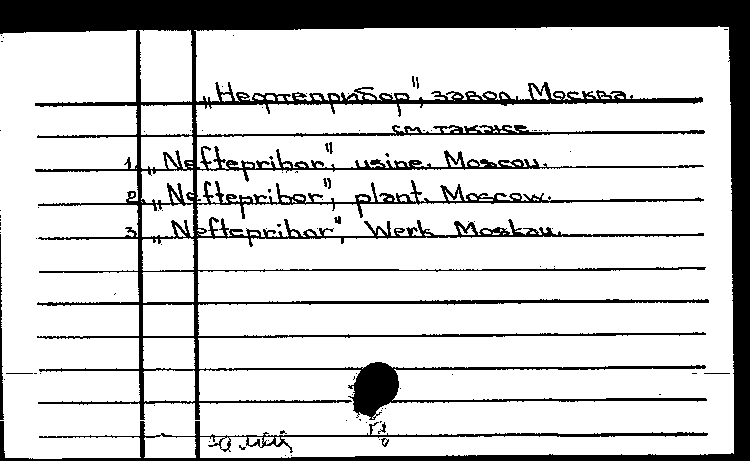 „Нефтеприбор", завод. Москва.
см. также
1. „Neftepribor", usine. Moscou.
2. „Neftepribor", plant. Moscow.
3. „Neftepribor", Werk. Moskau.